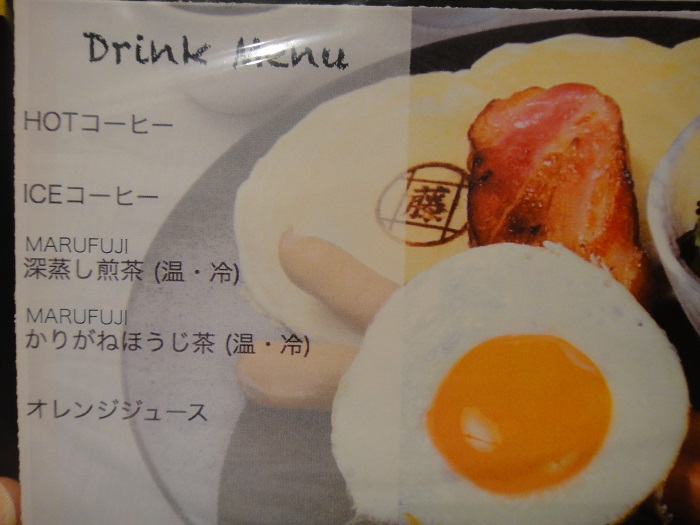 Drink Menu
HOTコーヒー
ICEコーヒー
MARUFUJI
深蒸し煎茶 (温・冷)
MARUFUJI
かりがねほうじ茶 (温・冷)
オレンジジュース
藤